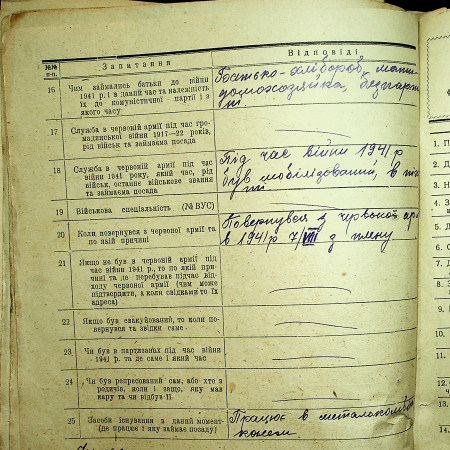 №№ п-п. Запитання Відповіді
16 Чим займались батьки до війни
1941 р. і в даний час та належність
їх до комуністичної партії і з
якого часу
Батько-хлібороб, мати
домохозяйка, безпарт
17 Служба в червоній армії під час гро-
мадянської війни 1917—22 років,
рід військ та займаема посада
18 Служба в червоній армії під час
війни 1941 року, який час, рід
військ, останнє військове звання
та займаема посада
Під час війни 1941 р
був мобілізований, в
19 Військова спеціальність (№ ВУС)
20 Коли повернувся з червоної армії та
по якій причині
Повернувся з червоної ар
в 1941 р 7/VIII з плену
21 Якщо не був в червоній армії під
час війни 1941 р., то по якій при-
чині та де перебував підчас від-
ходу червоної армії (чим може
підтвердити, а коли свідками то їх
адреса)
22 Якщо був евакуйований, то коли по-
вернувся та звідки саме
23 Чи був в партизанах під час війни
1941 р. та де саме і який час
24 Чи був репресований сам, або хто з
родичів, коли і защо, яку мав
кару та чи відбув її
25 Засоби існування в даний момент
(де працює і яку займає посаду)
Працює в
1. П
2. Д
3. Н
4.
5. Д
6. Д
7.
8. З
9.
10.
11.
12.
13.
14.